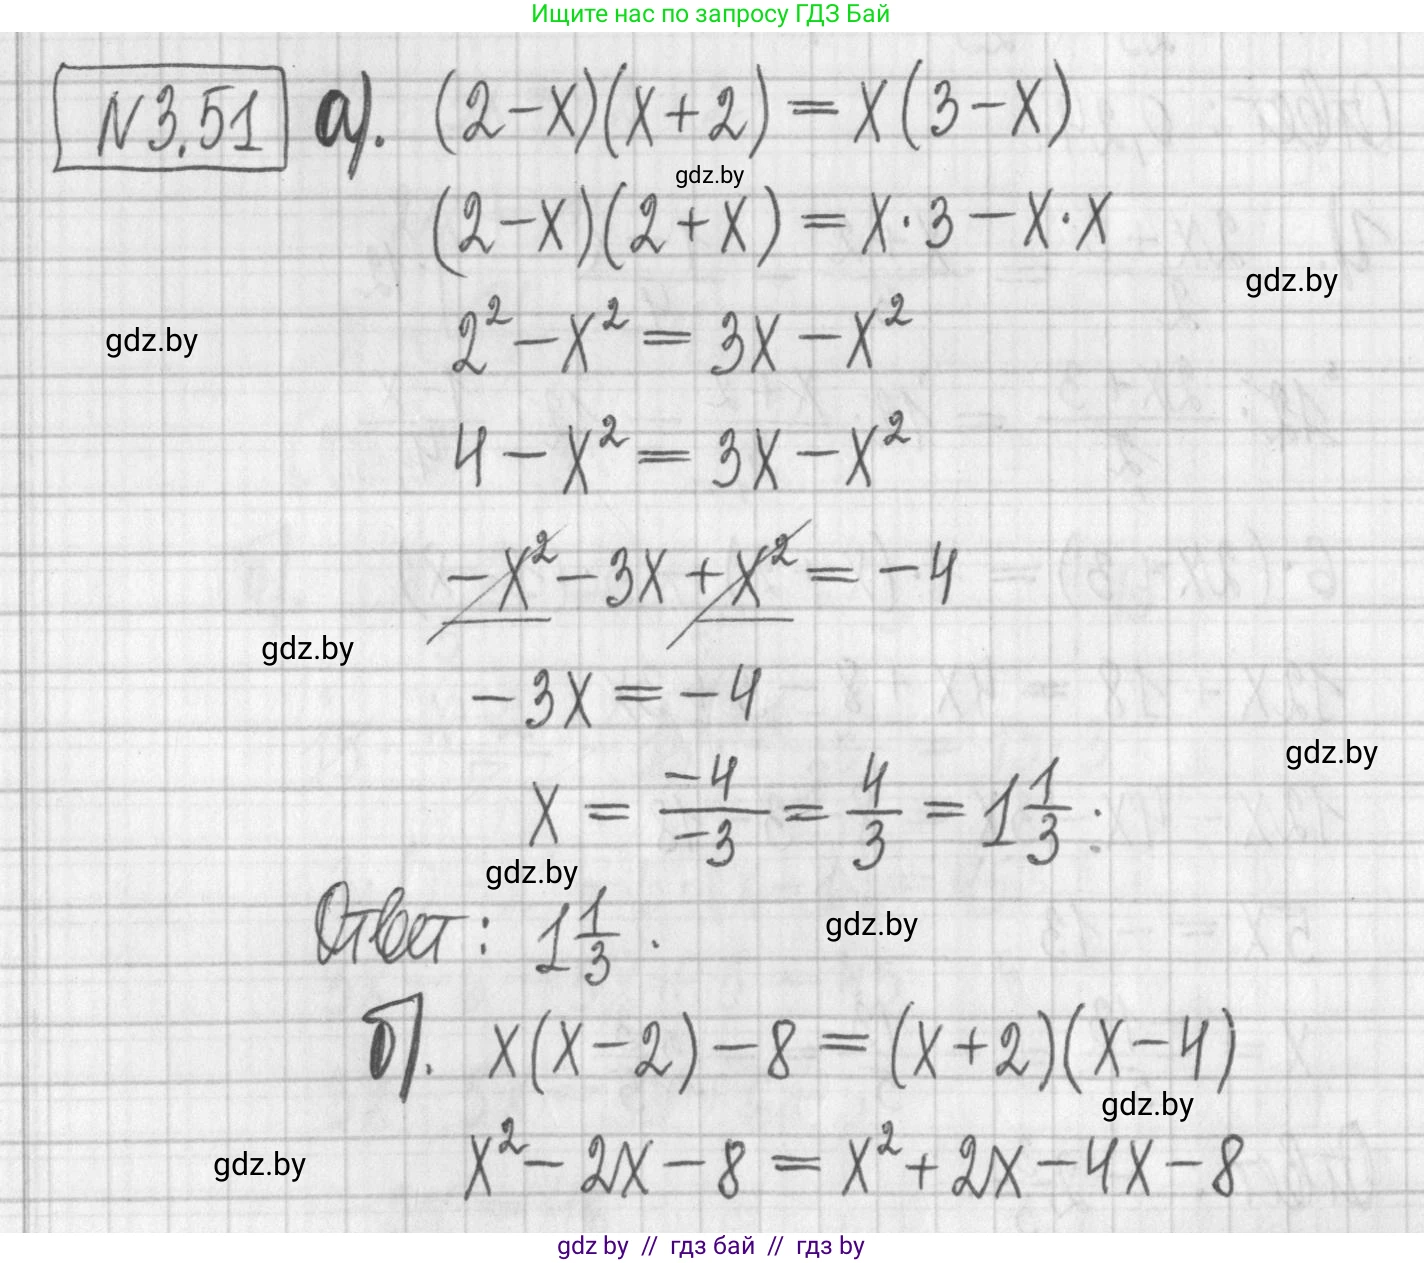 Ищите нас по запросу ГДЗ Бай
N3.51 а). (2-x)(x+2)=x(3-x)
gdz.by
(2-x)(2+x)=x·3-x·x
gdz.by
2²-x²=3x-x²
gdz.by
4-x²=3x-x²
-x²-3x+x²=-4
gdz.by
-3x=-4
gdz.by
x=-4/-3=4/3=1 1/3:
gdz.by
Ответ: 1 1/3.
gdz.by
б). x(x-2)-8=(x+2)(x-4)
gdz.by
x²-2x-8=x²+2x-4x-8
gdz.by
gdz.by // гдз бай // гдз by